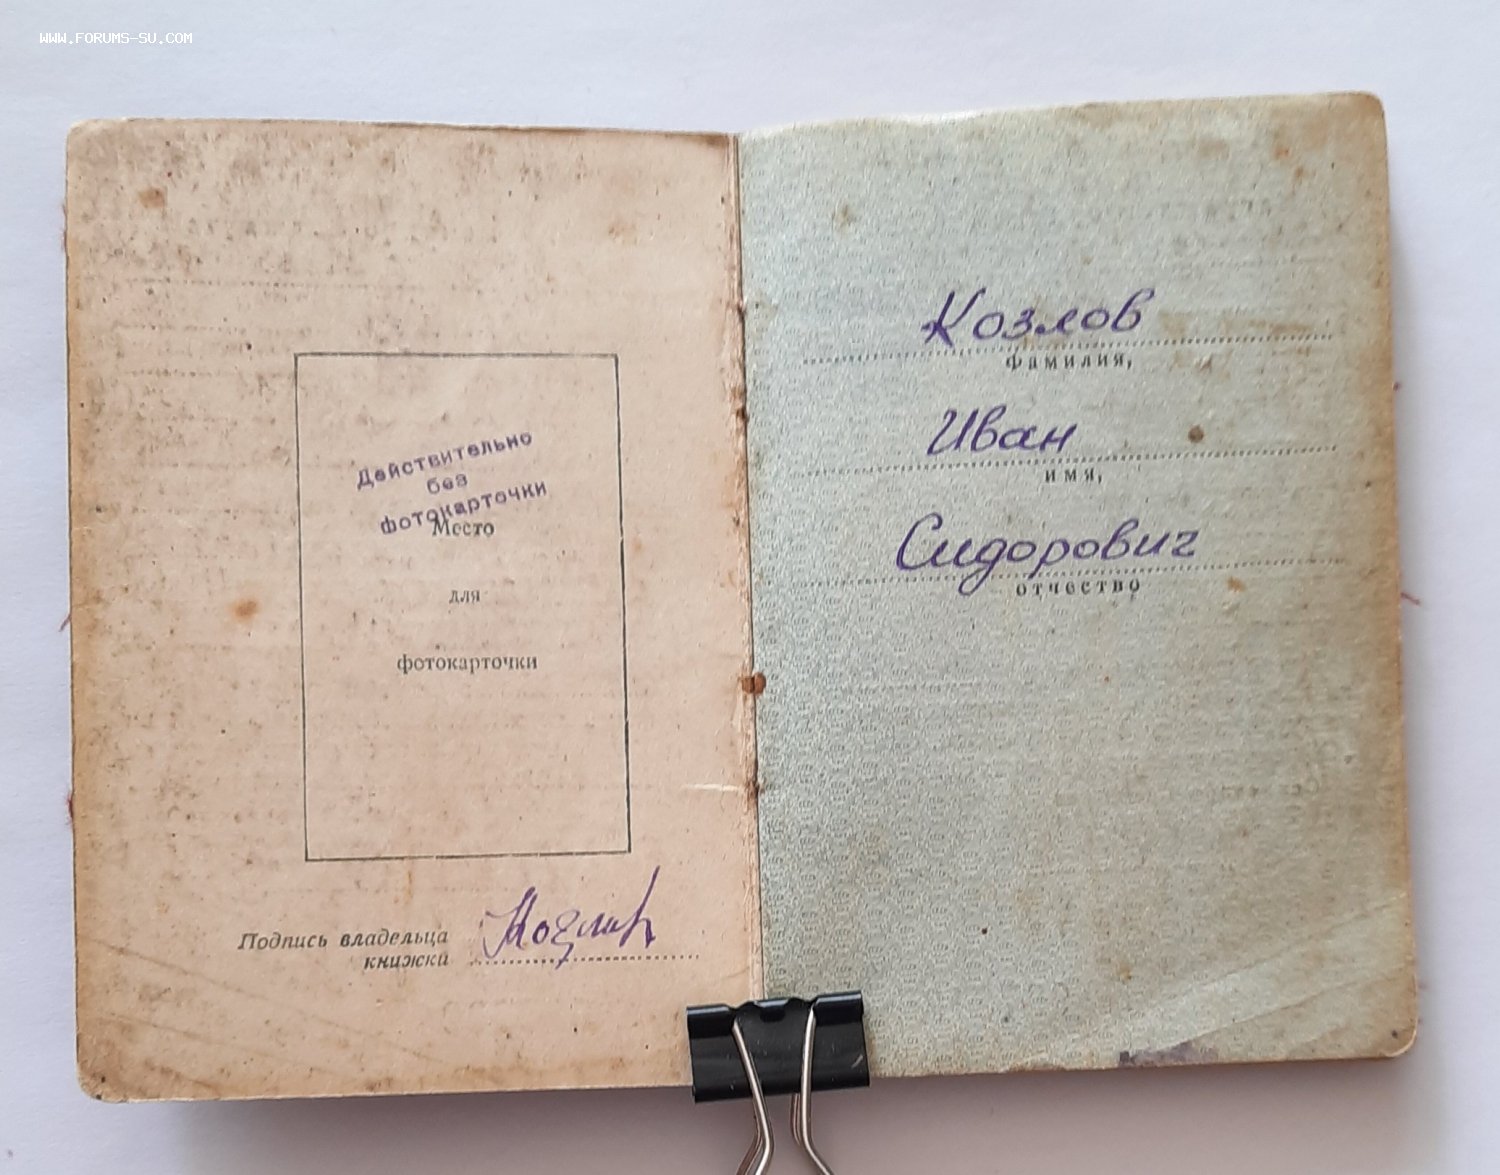 WWW.FORUMS-SU.COM
Действительно
без
фотокарточки
Место
для
фотокарточки
Подпись владельца
книжки
Козлов
Козлов
фамилия,
Иван
имя,
Сидорович
отчество